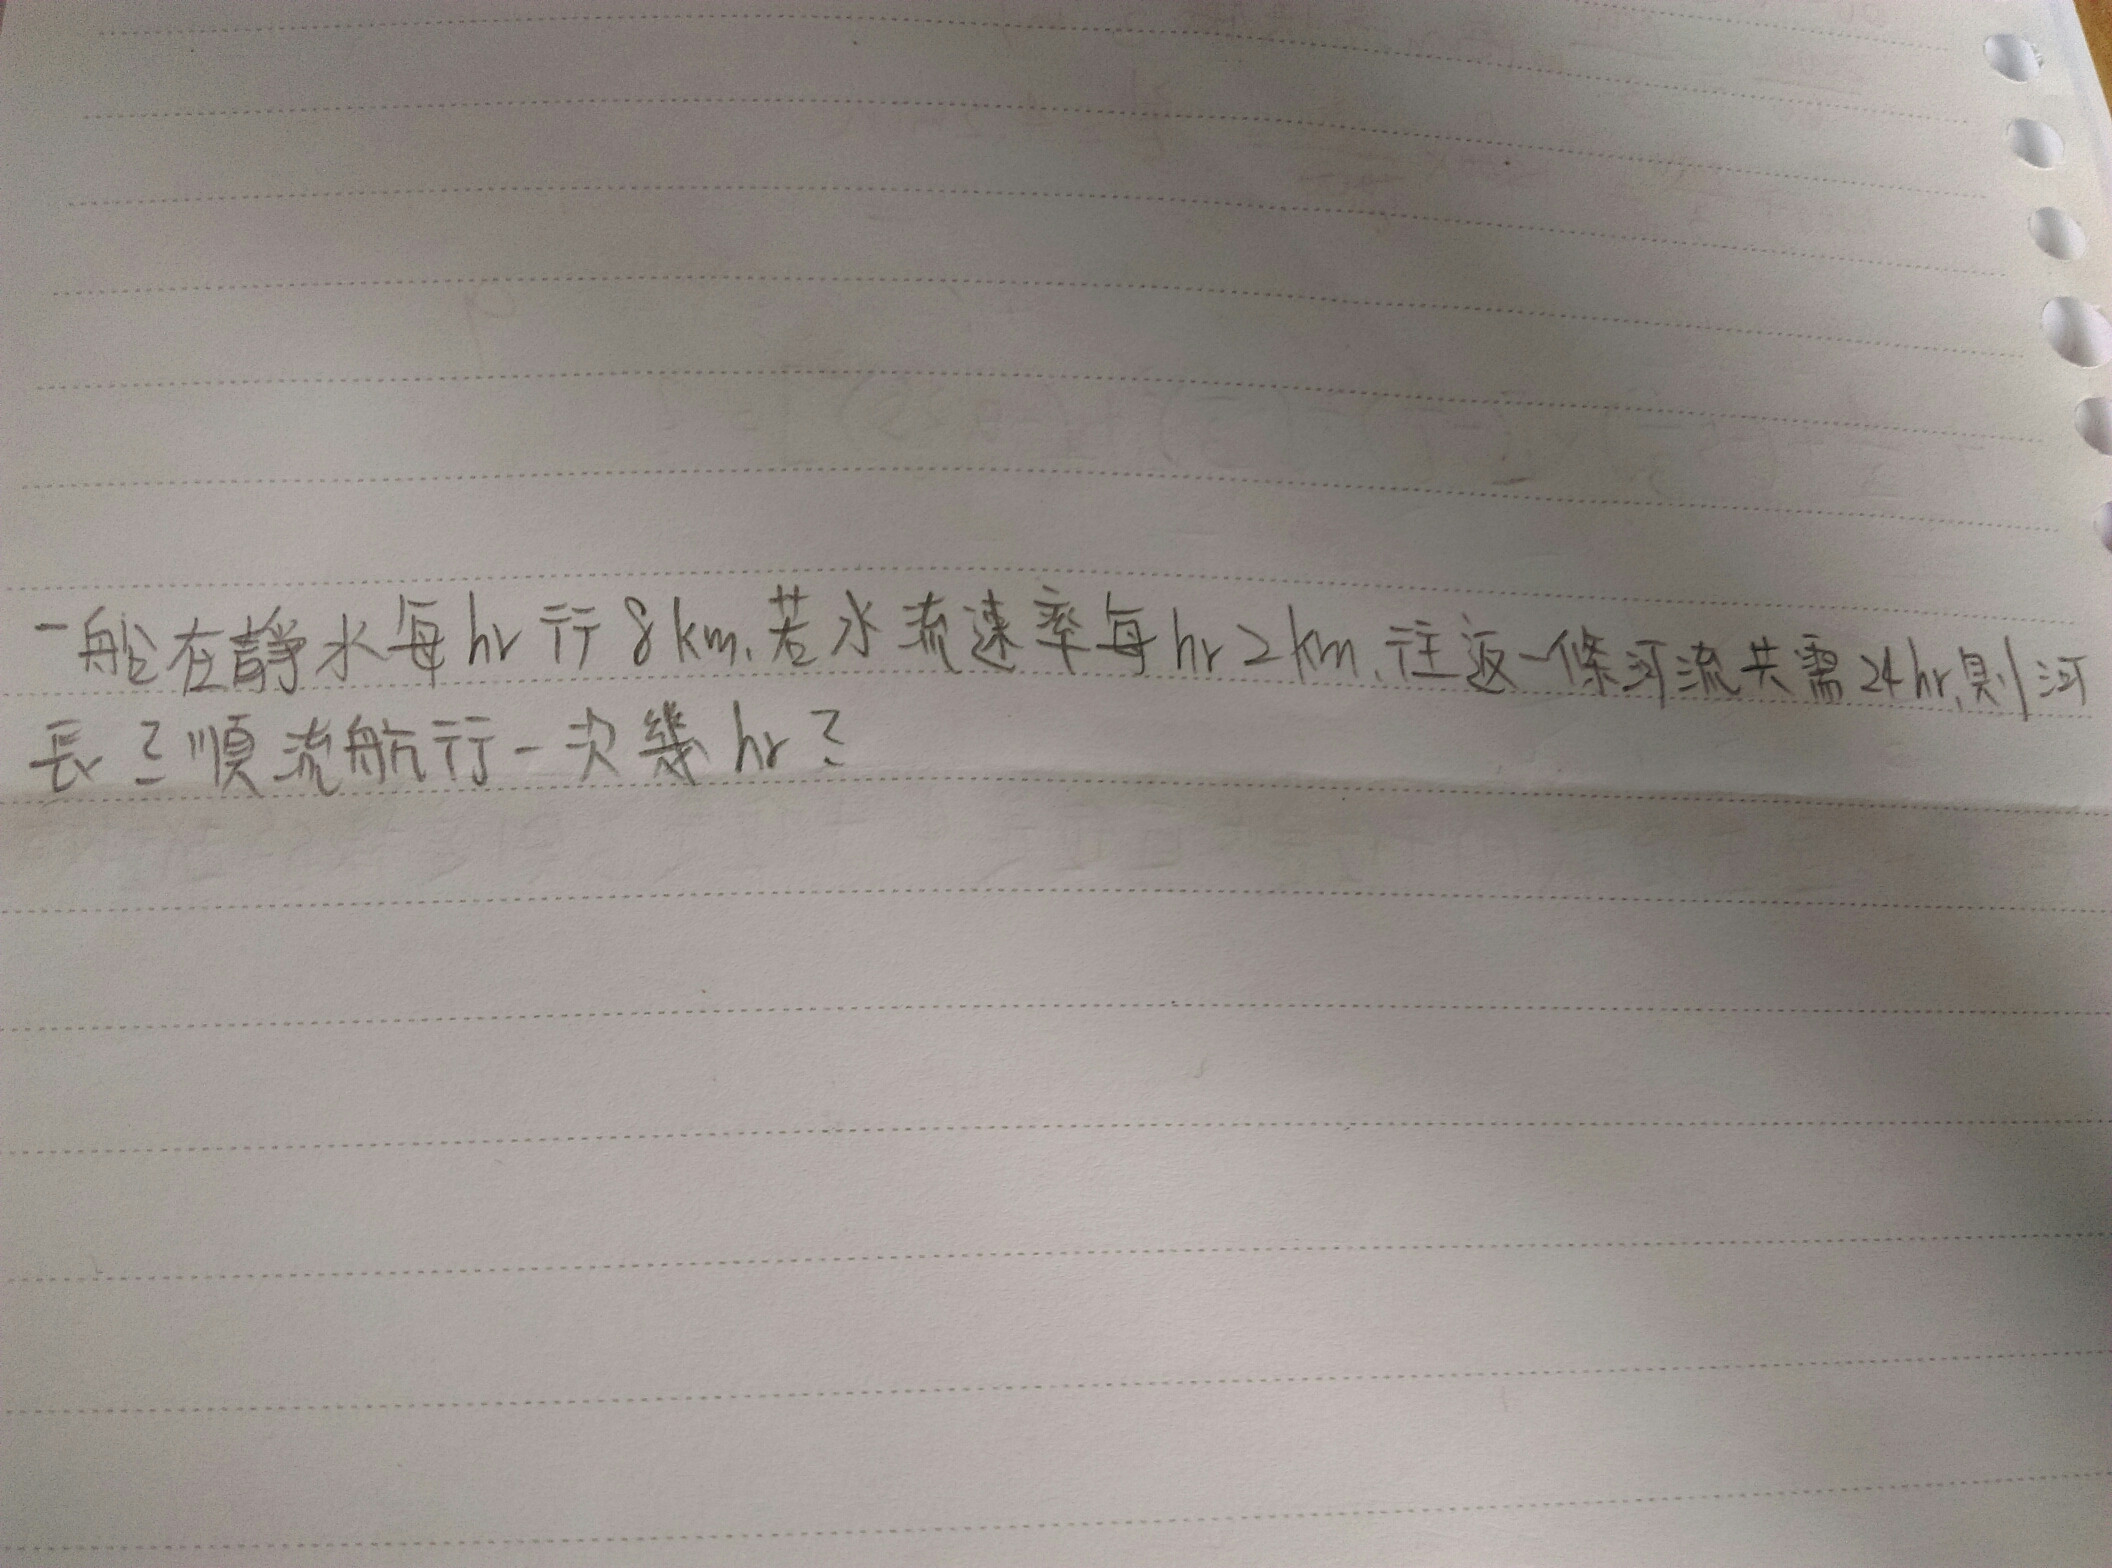 一船在靜水每hr行8km,若水流速率每hr2km,往返一條河流共需24hr,則河
長?順流航行一次幾hr?